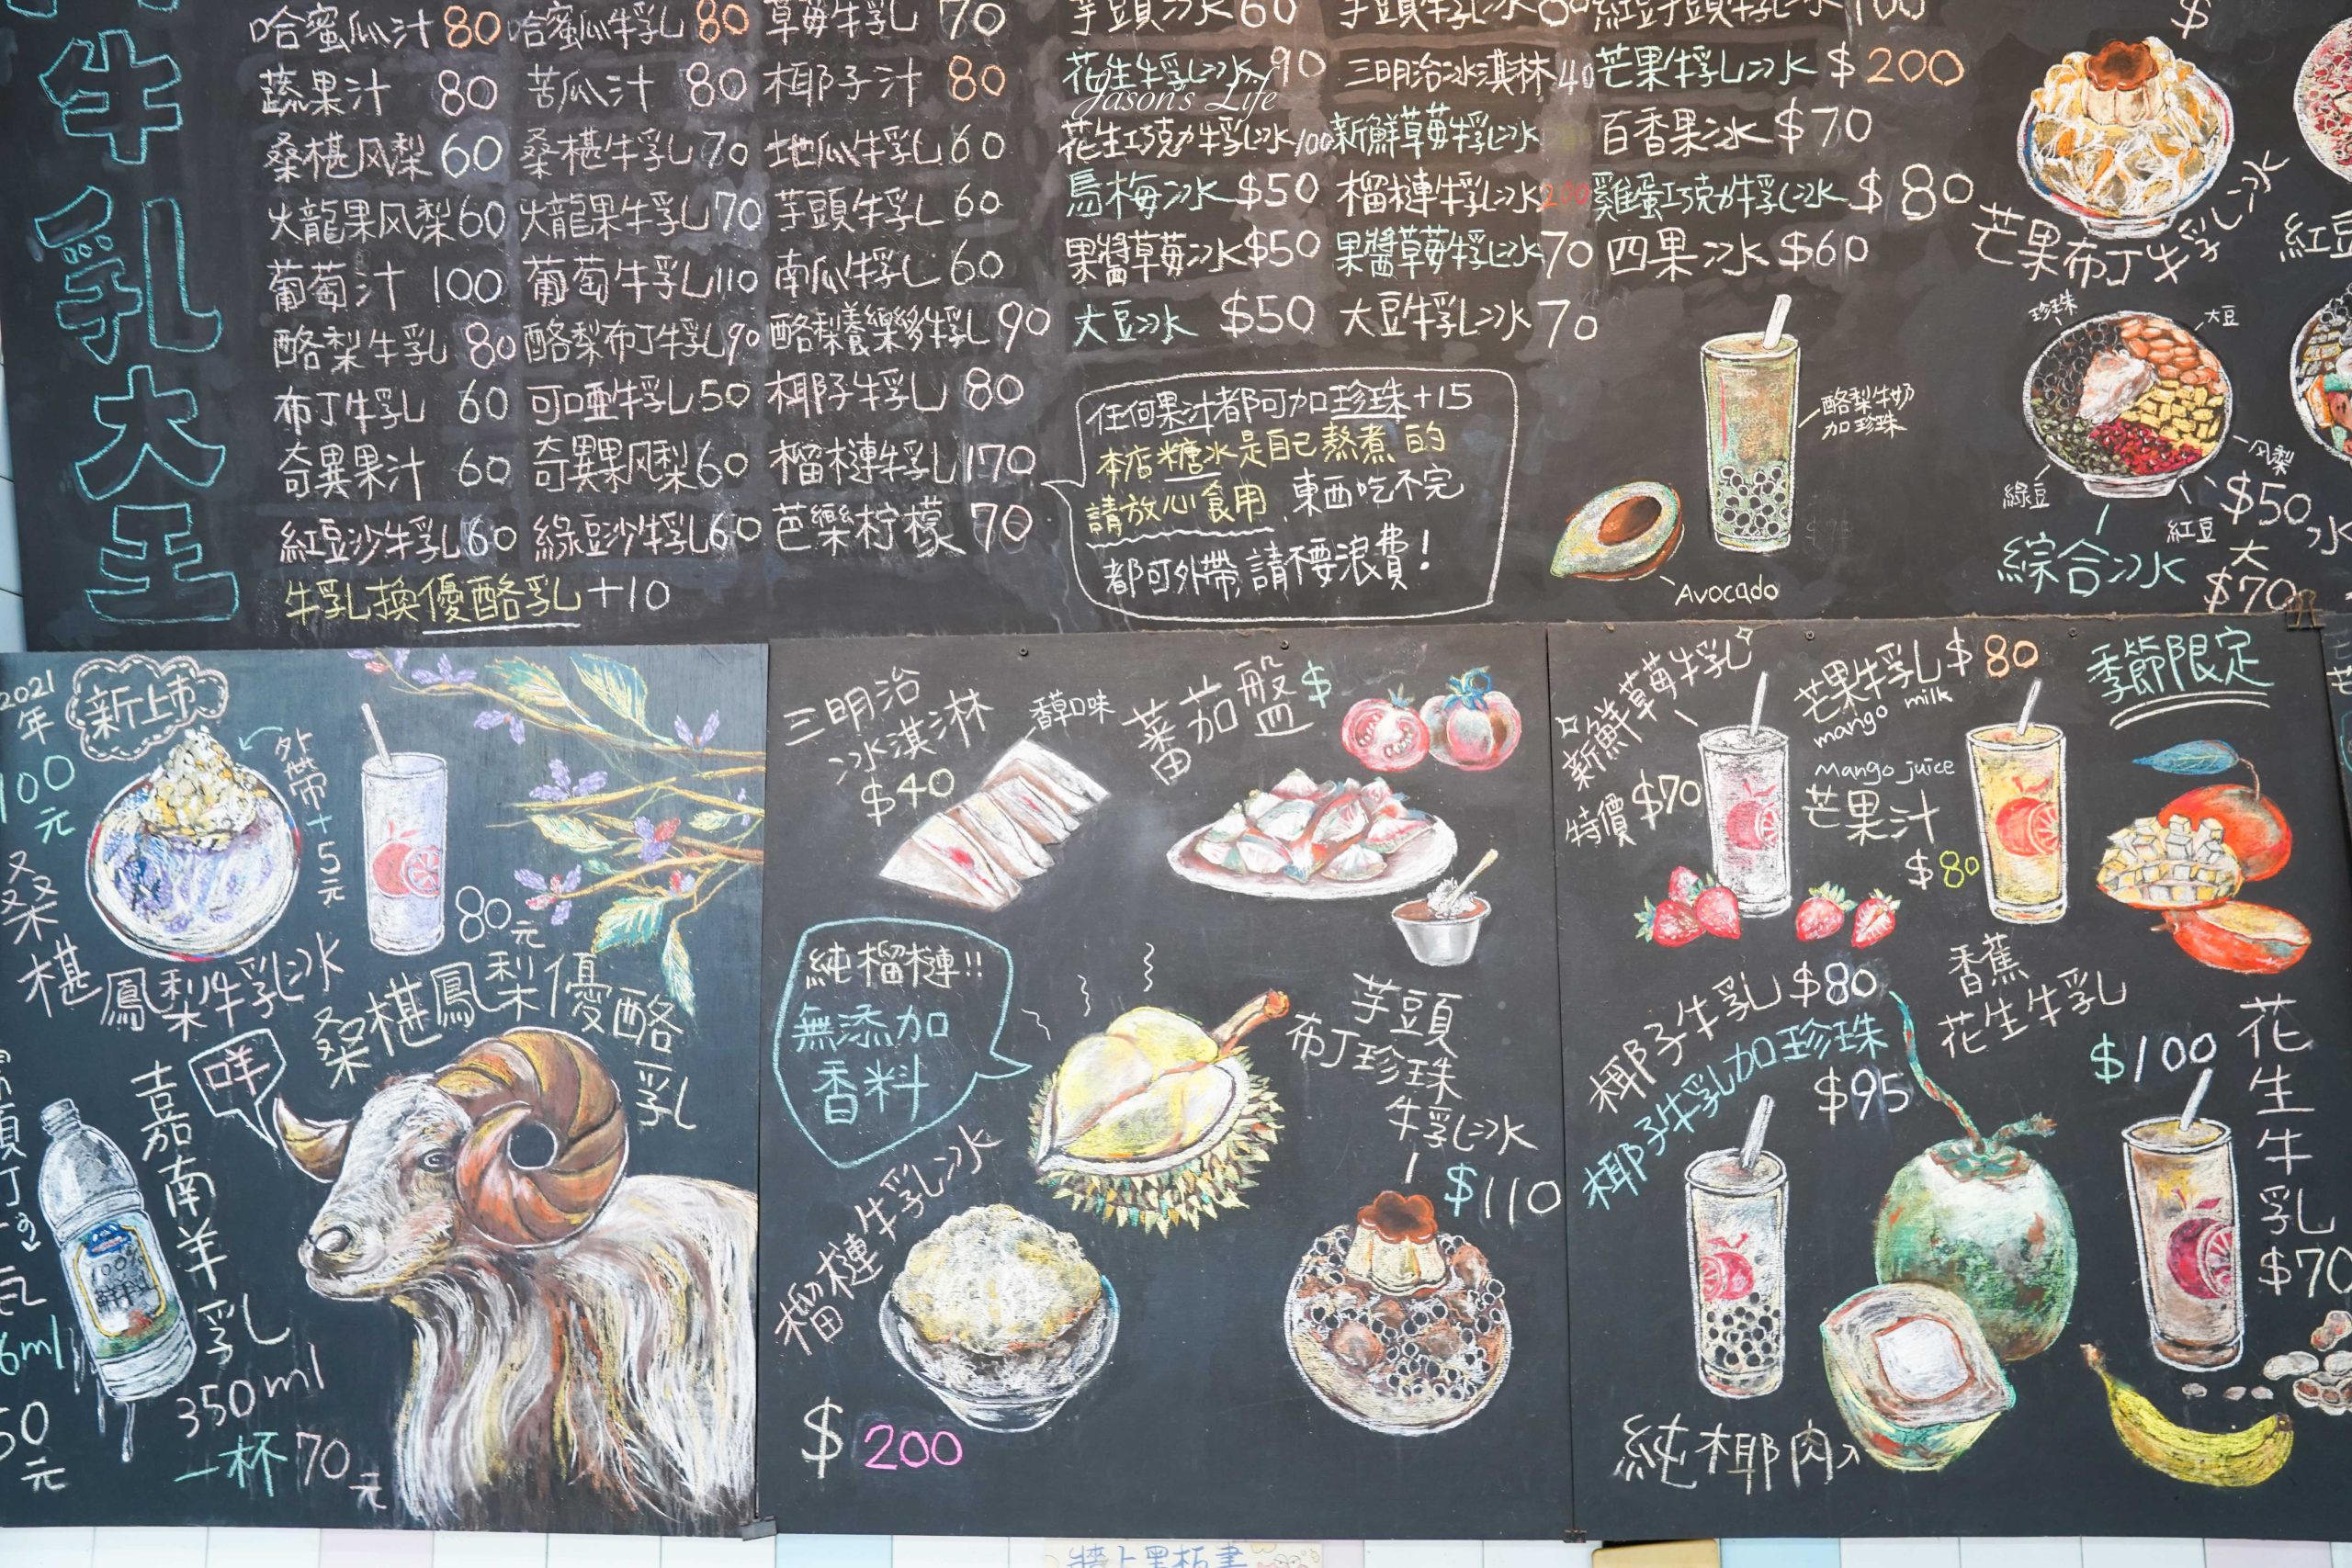 牛乳大王
哈蜜瓜汁 80 哈蜜瓜牛乳 80 草莓牛乳 70
蔬果汁 80 苦瓜汁 80 椰子汁 80
桑椹风梨 60 桑椹牛乳 70 地瓜牛乳 60
火龍果风梨 60 火龍果牛乳 70 芋頭牛乳 60
葡萄汁 100 葡萄牛乳 110 南瓜牛乳 60
酪梨牛乳 80 酪梨布丁牛乳 90 酪梨養樂多牛乳 90
布丁牛乳 60 可口亞牛乳 50 椰子牛乳 80
奇異果汁 60 奇異果风梨 60 榴槤牛乳 170
紅豆沙牛乳 60 綠豆沙牛乳 60 芭樂柠檬 70
牛乳換優酪乳 +10
芋頭冰 60 芋頭牛乳冰 紅豆芋頭牛乳冰 100
花生牛乳冰 90 三明治冰淇淋 40 芒果牛乳冰 $200
Jason's Life
花生巧克力牛乳冰 100 新鮮草莓牛乳冰 百香果冰 $70
烏梅冰 $50 榴槤牛乳冰 200 雞蛋巧克力牛乳冰 $80
果醬草莓冰 $50 果醬草莓牛乳冰 70 四果冰 $60
大豆冰 $50 大豆牛乳冰 70
任何果汁都可加珍珠+15
本店糖水是自己熬煮的
請放心食用,東西吃不完
都可外帶,請不要浪費!
酪梨牛奶
加珍珠
Avocado
$
芒果布丁牛乳冰
紅豆
珍珠
大豆
风梨
綠豆
紅豆
綜合冰
$50
大
$70
冰
2021
年
新上市
100
元
外帶+5元
桑椹鳳梨牛乳冰
80元
桑椹鳳梨優酪乳
咩
嘉南羊乳
350ml
一杯70元
100%
鮮
6ml
50
元
三明治
冰淇淋
$40
香草口味
蕃茄盤 $
純榴槤!!
無添加
香料
榴槤牛乳冰
$200
芋頭
布丁珍珠
牛乳冰
$110
新鮮草莓牛乳
特價 $70
芒果牛乳 $80
mango milk
Mango juice
芒果汁
$80
季節限定
椰子牛乳 $80
椰子牛乳加珍珠
$95
香蕉
花生牛乳
$100
花生牛乳
$70
純椰肉
牆上黑板畫